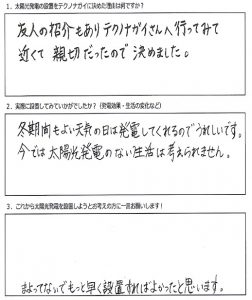 1．太陽光発電の設置をテクノナガイに決めた理由は何ですか？
友人の紹介もありテクノナガイさんへ行ってみて
近くて親切だったので決めました。
2．実際に設置してみていかがでしたか？（発電効果・生活の変化など）
冬期間もよい天気の日は発電してくれるのでうれしいです。
今では太陽光発電のない生活は考えられません。
3．これから太陽光発電を設置しようとお考えの方に一言お願いします！
まよってないでもっと早く設置すればよかったと思います。